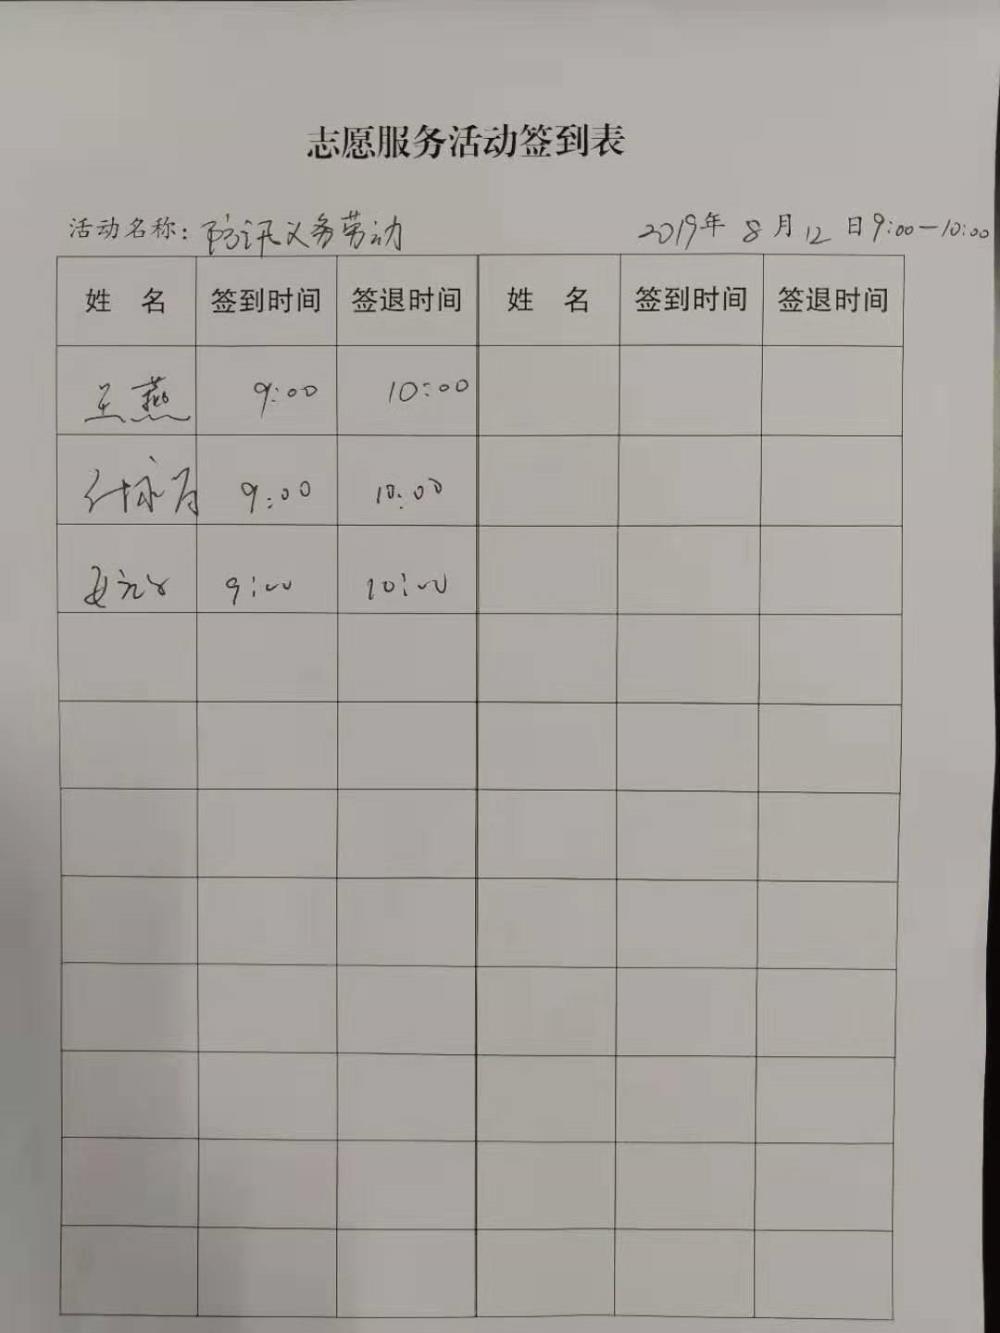 志愿服务活动签到表
活动名称：防讯义务劳动 2019年 8月12日9:00—10:00
姓 名 签到时间 签退时间 姓 名 签到时间 签退时间
王燕 9:00 10:00
9:00 10:00
9:00 10:00